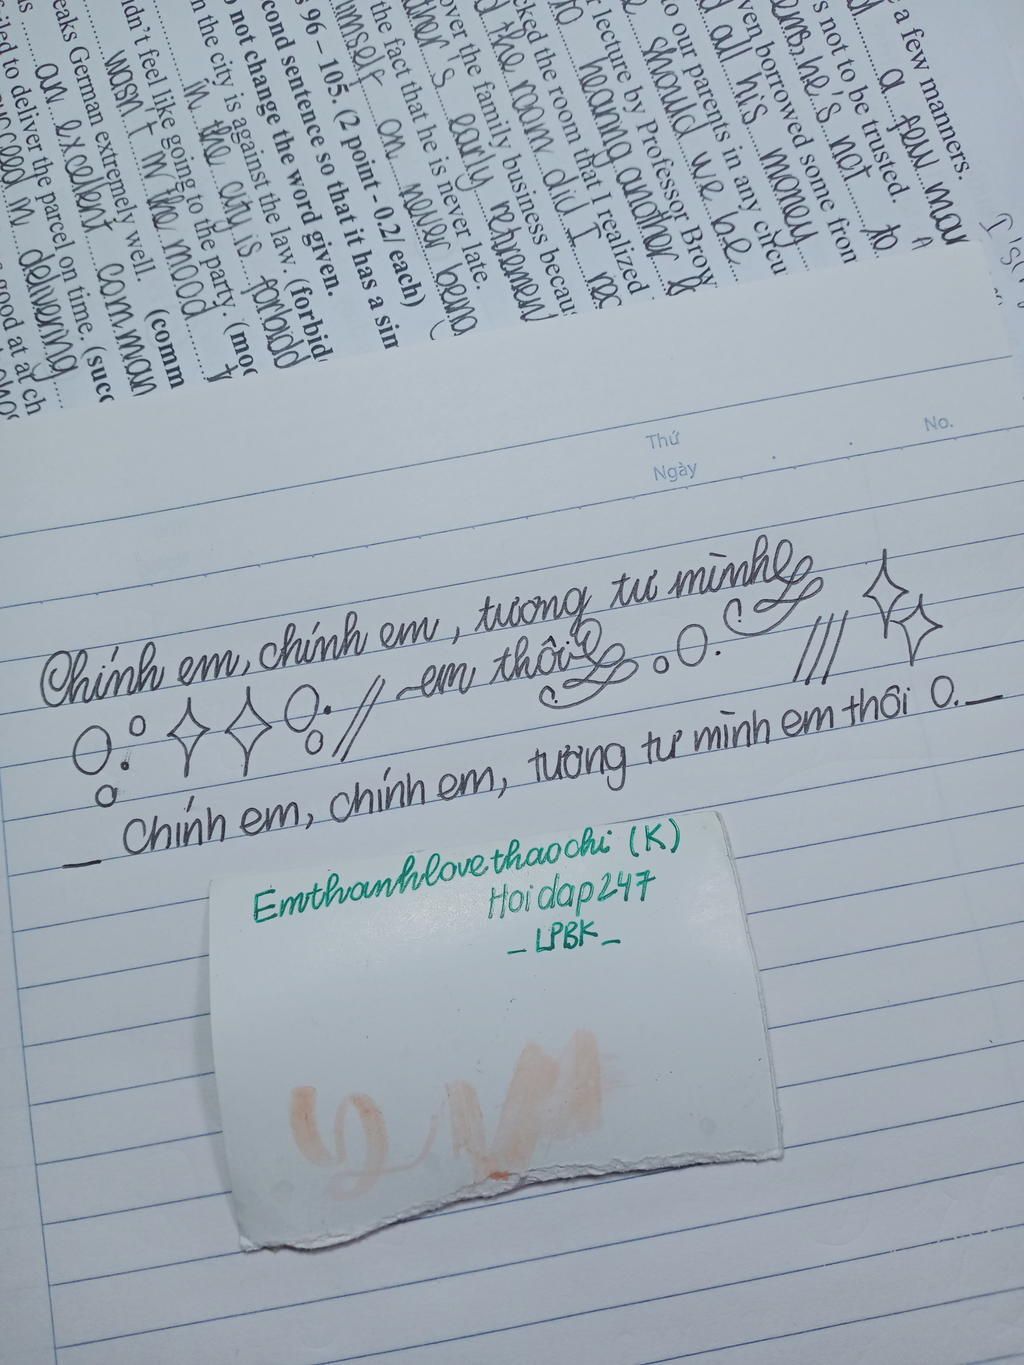 a few manners.
a few man
s not to be trusted.
he's not to
ven borrowed some from
all his money
to our parents in any circu
should we be
lecture by Professor Brow
to hearing another
cked the room that I realized
the room did I rec
over the family business becau
early retirement
the fact that he is never late.
imself on never being
s 96 – 105. (2 point - 0.2/ each)
econd sentence so that it has a sim
not change the word given.
n the city is against the law. (forbid
in the city is forbidd
dn't feel like going to the party. (moo
wasn't in the mood t
eaks German extremely well. (comm
an excellent comman
iled to deliver the parcel on time. (succ
ucceed in delivering
good at at ch
Thứ
No.
Ngày
Chính em, chính em, tương tư mình
em thôi
_ Chính em, chính em, tương tư mình em thôi 0._
Emthanhlovethaochi (K)
Hoidap247
_LPBK_